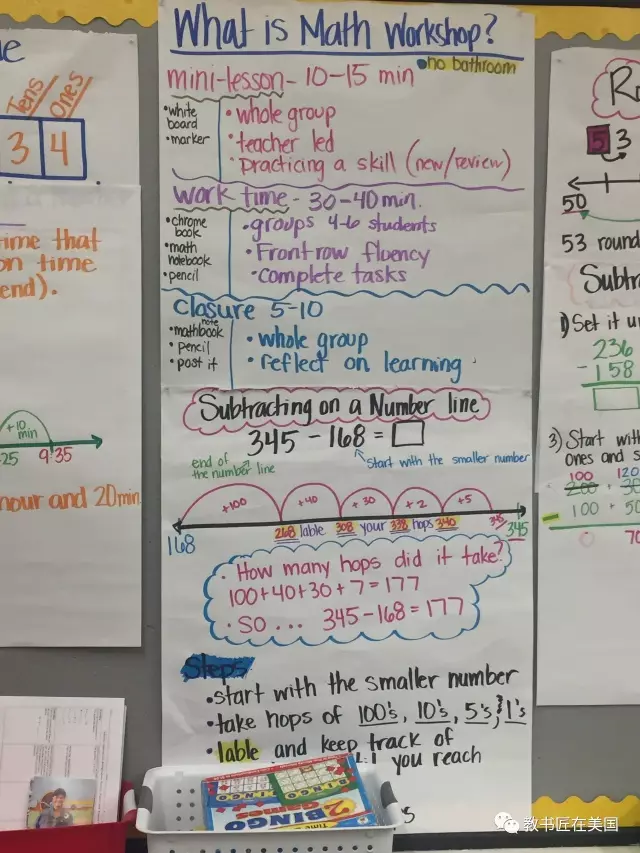 What is Math Workshop?
no bathroom
mini-lesson- 10-15 min
white board
marker
whole group
teacher led
Practicing a skill (new/review)
work time - 30-40 min.
chrome book
math notebook
pencil
groups 4-6 students
Front row fluency
complete tasks
closure 5-10
math notebook
pencil
post it
whole group
reflect on learning
Subtracting on a Number line
345 - 168 =
end of the number line
Start with the smaller number
+100 +40 +30 +2 +5
168 268 lable 308 your 338 hops 340 345 345
How many hops did it take?
100+40+30+7=177
SO... 345-168=177
Steps
start with the smaller number
take hops of 100's, 10's, 5's, 1's
lable and keep track of
you reach
Tens Ones
3 4
time that
on time
end).
+10 min
:25 9:35
hour and 20min
5 3
50
53 round
Subtra
1) Set it u
236
-158
3) Start with
ones and s
100 120
200 + 30
100 + 50
0 70
BINGO
BINGO
2 BINGO
Games
教书匠在美国